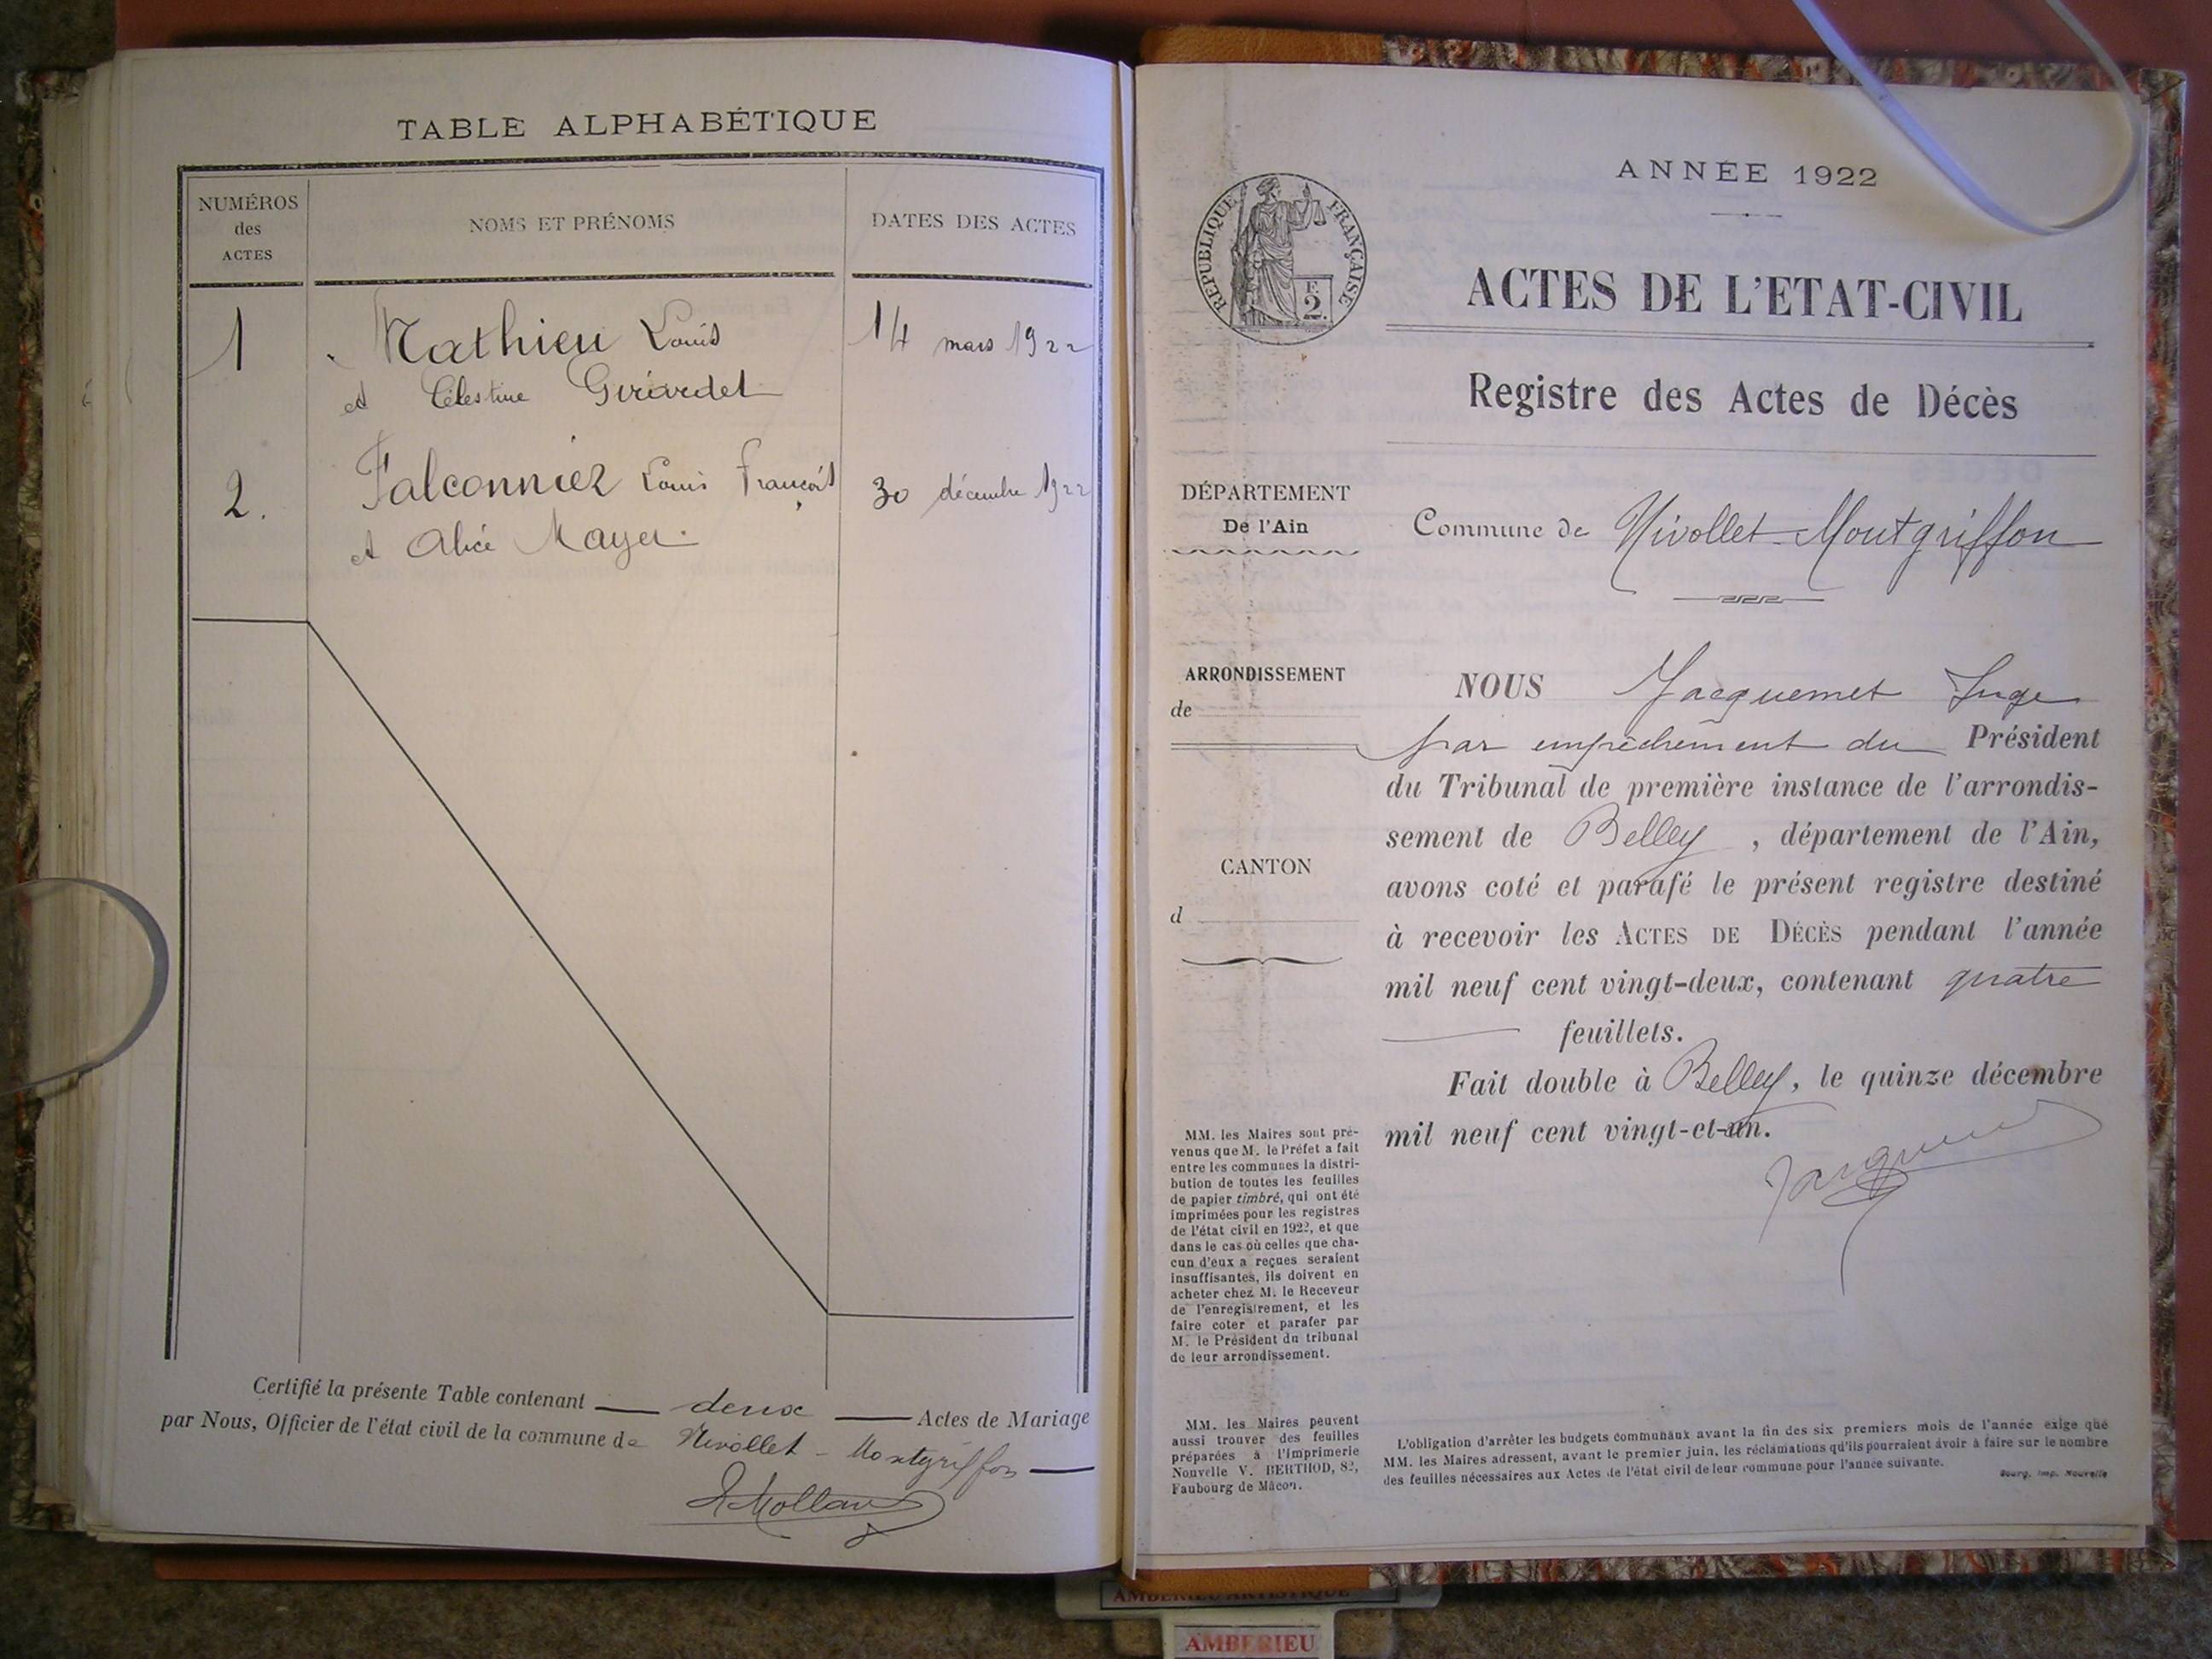 TABLE ALPHABÉTIQUE
NUMÉROS
des
ACTES
NOMS ET PRÉNOMS
DATES DES ACTES
1
Mathieu Louis
14 mars 1922
et Célestine Girardet
2.
Falconnier Louis François
30 décembre 1922
et Alice Mayer
Certifié la présente Table contenant deux Actes de Mariage
par Nous, Officier de l'état civil de la commune de Nivollet - Montgriffon
ANNÉE 1922
RÉPUBLIQUE FRANÇAISE
F.
2.
ACTES DE L'ETAT-CIVIL
Registre des Actes de Décès
DÉPARTEMENT
De l'Ain
Commune de Nivollet-Montgriffon
ARRONDISSEMENT
de
CANTON
d
NOUS Jacquemet Juge
par empêchement du Président
du Tribunal de première instance de l'arrondis-
sement de Belley, département de l'Ain,
avons coté et parafé le présent registre destiné
à recevoir les ACTES DE DÉCÈS pendant l'année
mil neuf cent vingt-deux, contenant quatre
feuillets.
Fait double à Belley, le quinze décembre
mil neuf cent vingt-et-un.
MM. les Maires sont pré-
venus que M. le Préfet a fait
entre les communes la distri-
bution de toutes les feuilles
de papier timbré, qui ont été
imprimées pour les registres
de l'état civil en 1922, et que
dans le cas où celles que cha-
cun d'eux a reçues seraient
insuffisantes, ils doivent en
acheter chez M. le Receveur
de l'enregistrement, et les
faire coter et parafer par
M. le Président du tribunal
de leur arrondissement.
MM. les Maires peuvent
aussi trouver des feuilles
préparées à l'Imprimerie
Nouvelle V. BERTHOD, 82,
Faubourg de Mâcon.
L'obligation d'arrêter les budgets communaux avant la fin des six premiers mois de l'année exige que
MM. les Maires adressent, avant le premier juin, les réclamations qu'ils pourraient avoir à faire sur le nombre
des feuilles nécessaires aux Actes de l'état civil de leur commune pour l'année suivante.
Bourg, Imp. Nouvelle
AMBERIEU ARTISTIQUE
AMBERIEU